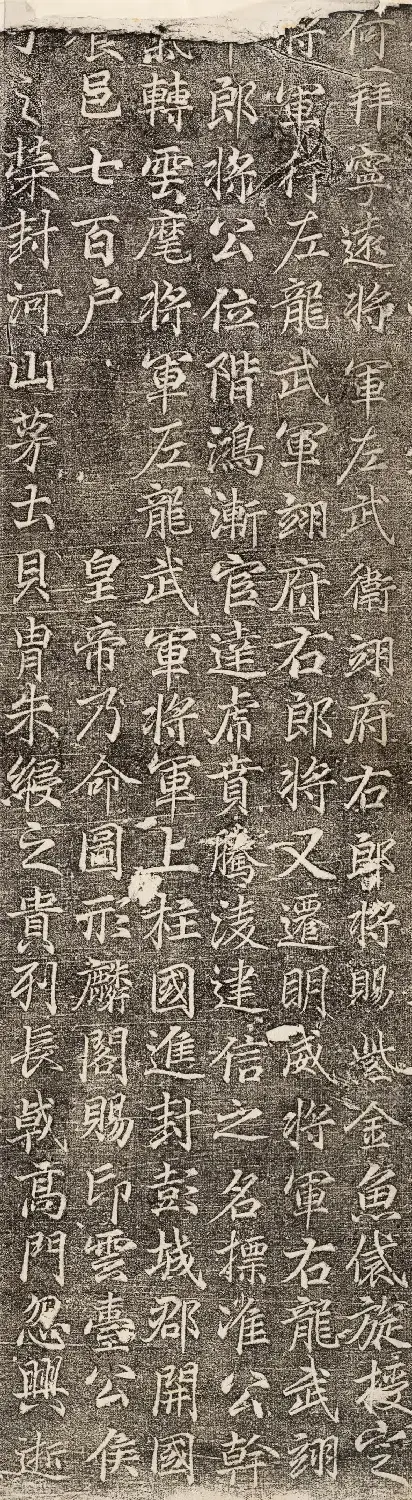 何拜寧遠將軍左武衛翊府右郎將賜紫金魚袋旋授定
將軍行左龍武軍翊府右郎將又遷明威將軍右龍武翊
郎將公位階鴻漸官達虎賁騰凌建信之名摽灌公幹
轉雲麾將軍左龍武軍將軍上柱國進封彭城郡開國
邑七百户 皇帝乃命圖形麟閣賜印雲臺公侯
之榮封河山茅土貝胄朱綬之貴列長戟高門忽興逝